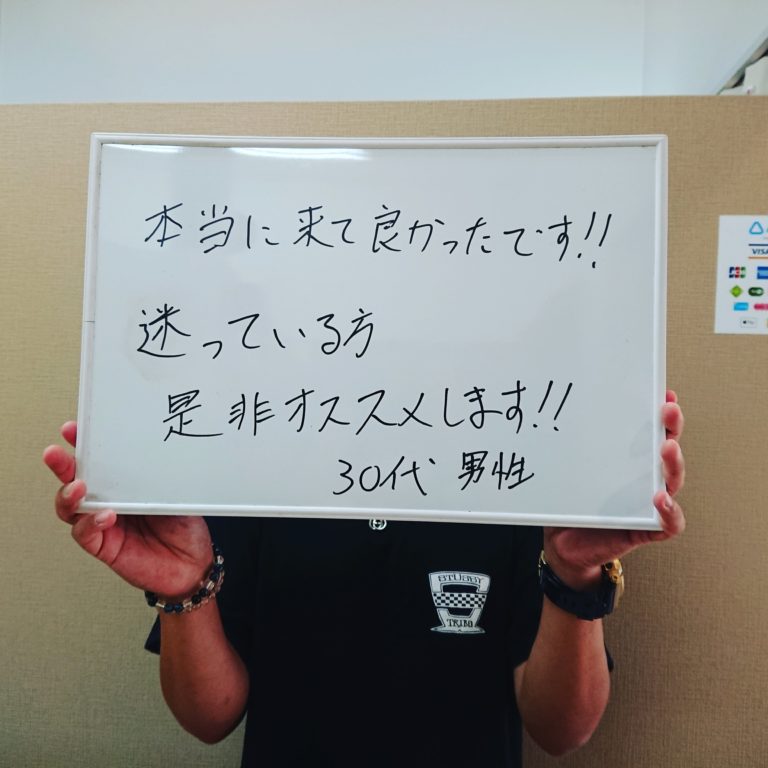 本当に来て良かったです!!
迷っている方
是非オススメします!!
30代 男性
VISA
JCB
STUBBY